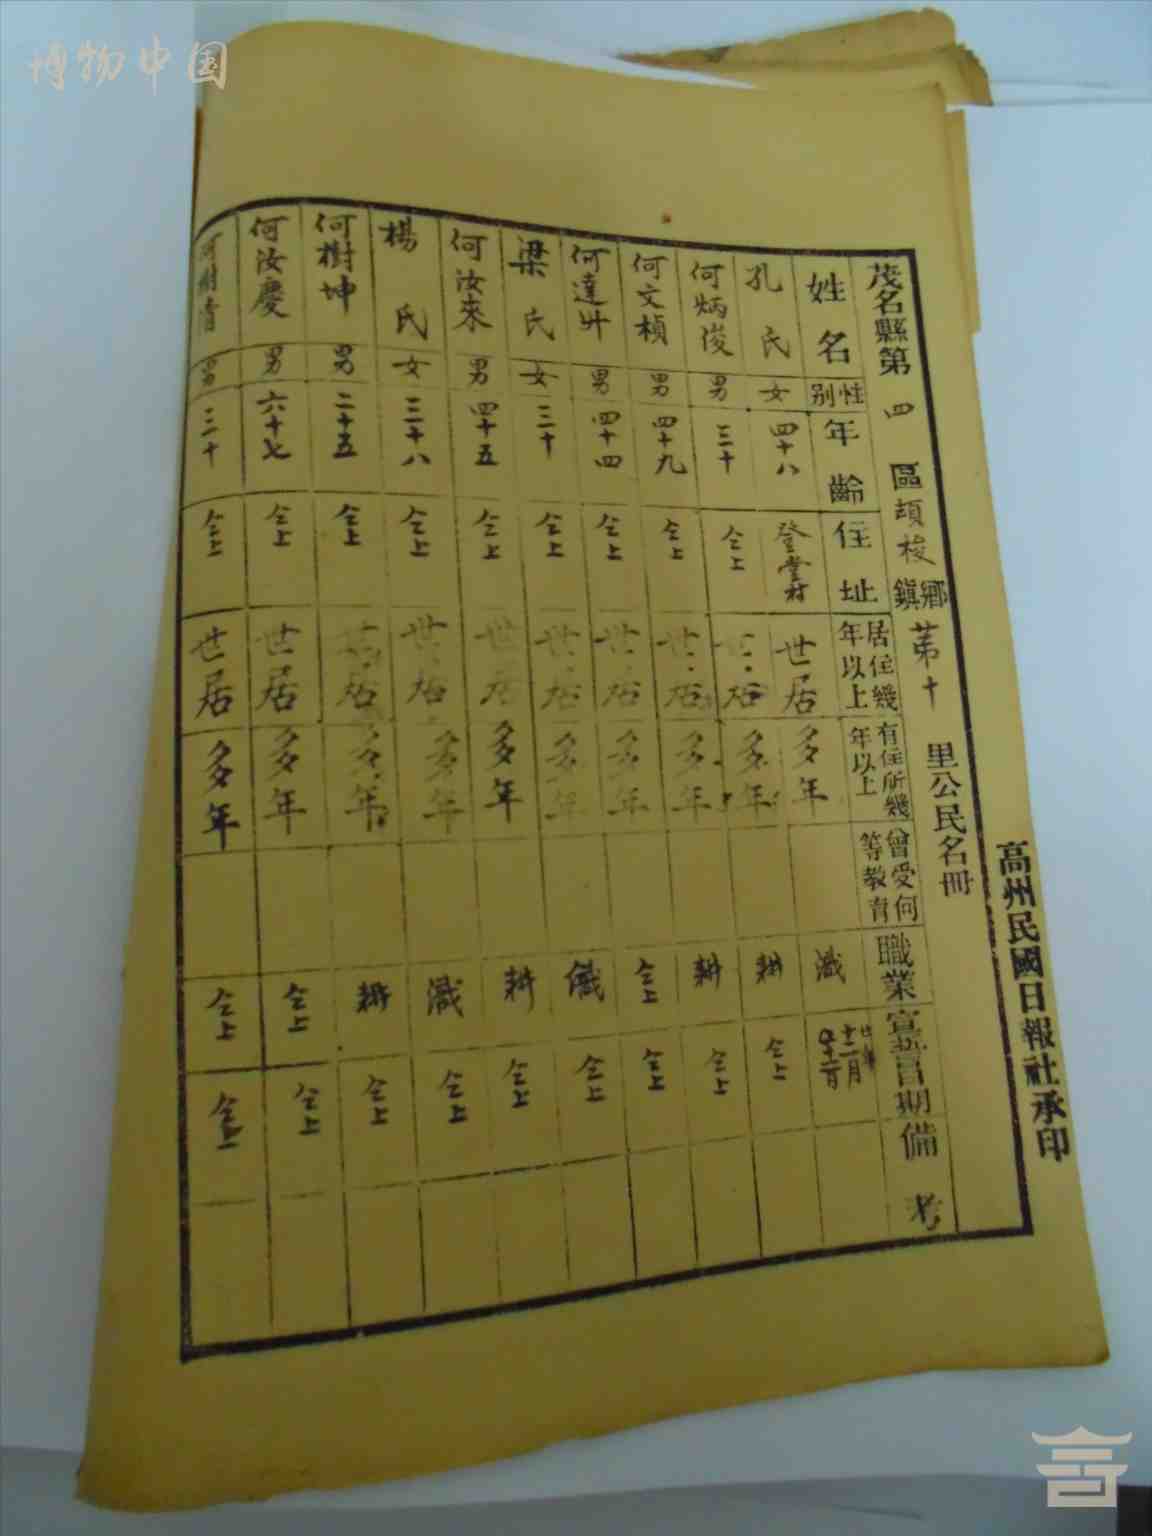 博物中国
高州民國日報社承印
茂名縣第四區頡梭鄉鎮第十里公民名冊
姓名 性別 年齡 住址 居住幾年以上 有住所幾年以上 曾受何等教育 職業 宣誓日期 備考
孔氏 女 四十八 登堂村 世居 多年 十二月
何炳俊 男 三十 仝上 世居 多年 耕 仝上
何文楨 男 四十九 仝上 世居 多年 耕 仝上
何達 男 四十四 仝上 世居 多年 仝上 仝上
梁氏 女 三十 仝上 世居 多年 仝上
何汝來 男 四十五 仝上 世居 多年 耕 仝上
楊氏 女 三十八 仝上 世居 多年 仝上
何樹坤 男 二十五 仝上 世居 多年 耕 仝上
何汝慶 男 六十七 仝上 世居 多年 仝上 仝上
何樹 男 三十 仝上 世居 多年 仝上 仝上